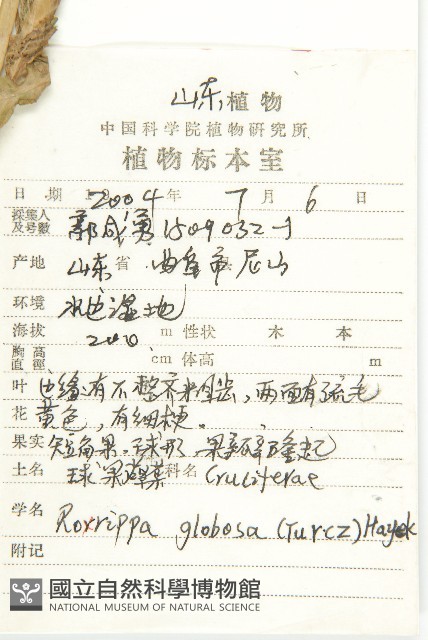 山东植物
中国科学院植物研究所
植物标本室
日 期 2004年 7月 6日
采集人及号数 郭成勇 1509032-1
产地 山东省 曲阜市 尼山
环境 水边湿地
海拔 200 m 性状 木 本
胸高直径 cm 体高 m
叶 边缘有不整齐粗齿，两面有疏毛
花 黄色，有细梗。
果实 短角果，球形，果
土名 球果蔊菜 科名 Cruciferae
学名 Rorrippa globosa (Turcz) Hayek
附记
國立自然科學博物館
NATIONAL MUSEUM OF NATURAL SCIENCE